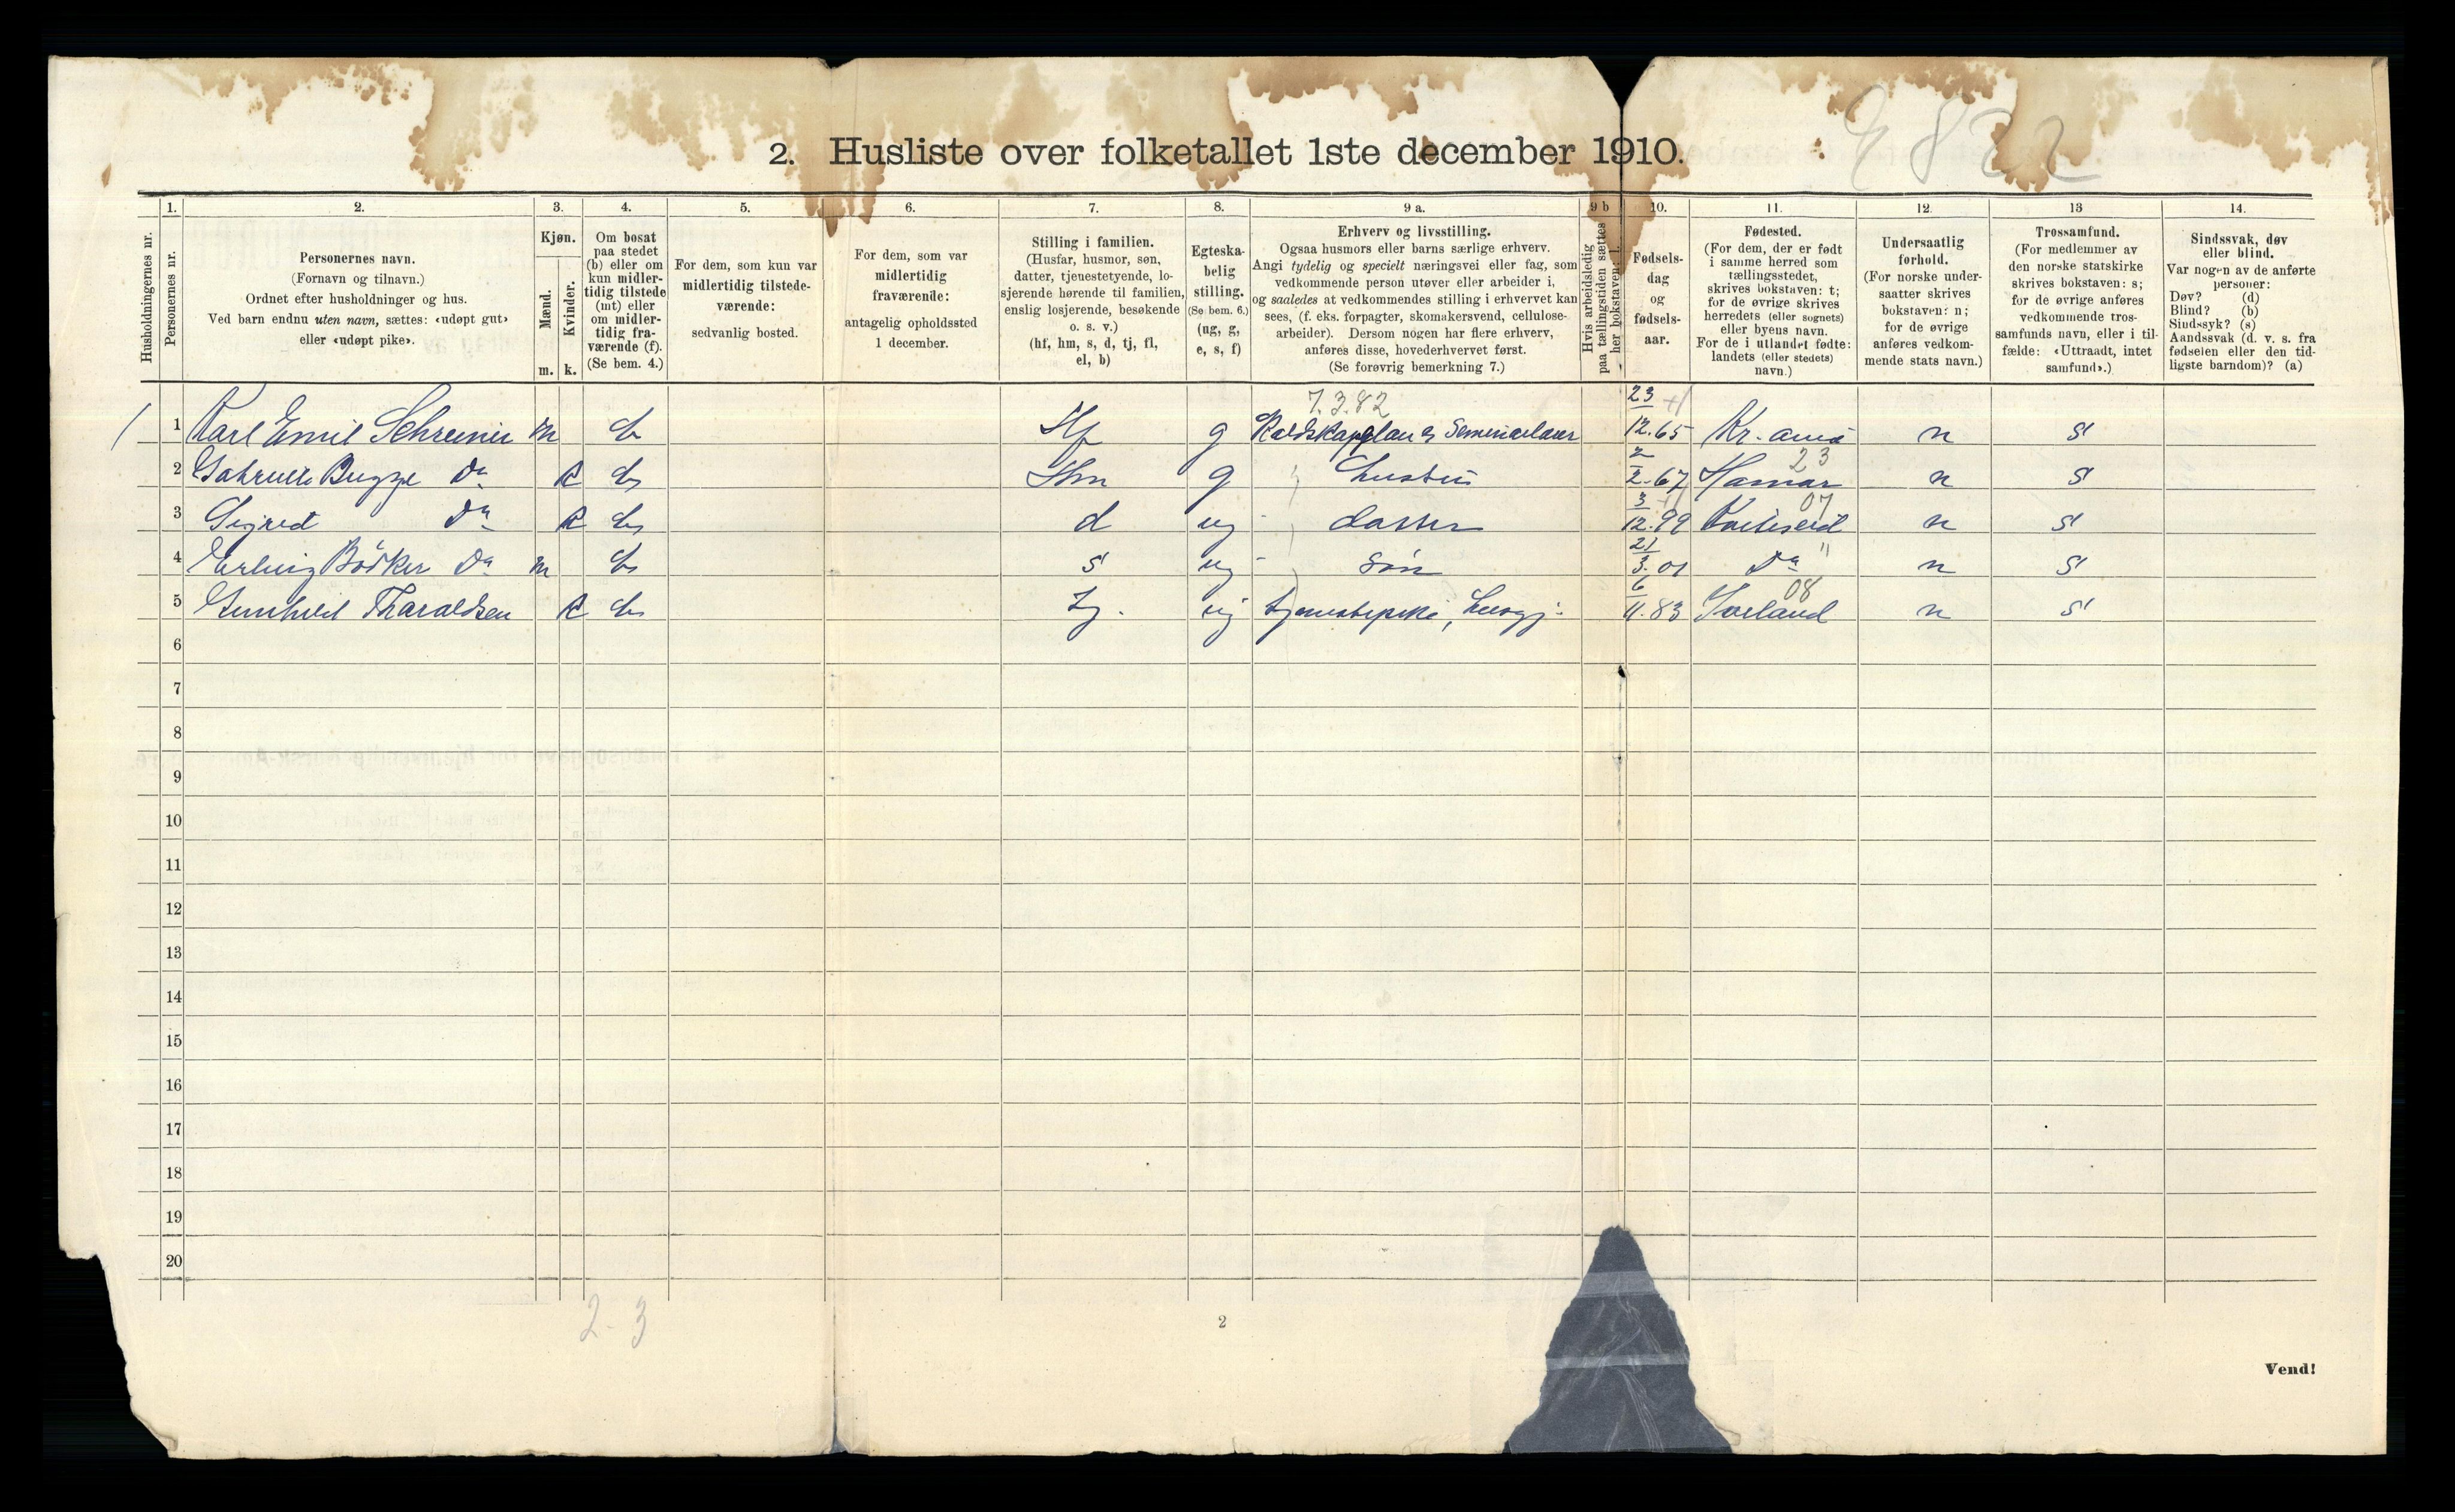 9822
2. Husliste over folketallet 1ste december 1910.
Husholdningernes nr.
1.
Personernes nr.
2.
Personernes navn.
(Fornavn og tilnavn.)
Ordnet efter husholdninger og hus.
Ved barn endnu uten navn, sættes: «udøpt gut»
eller «udøpt pike».
3.
Kjøn.
Mænd.
Kvinder.
m. k.
4.
Om bosat
paa stedet
(b) eller om
kun midler-
tidig tilstede
(mt) eller
om midler-
tidig fra-
værende (f).
(Se bem. 4.)
5.
For dem, som kun var
midlertidig tilstede-
værende:
sedvanlig bosted.
6.
For dem, som var
midlertidig
fraværende:
antagelig opholdssted
1 december.
7.
Stilling i familien.
(Husfar, husmor, søn,
datter, tjenestetyende, lo-
sjerende hørende til familien,
enslig losjerende, besøkende
o. s. v.)
(hf, hm, s, d, tj, fl,
el, b)
8.
Egteska-
belig
stilling.
(Se bem. 6.)
(ug, g,
e, s, f)
9 a.
Erhverv og livsstilling.
Ogsaa husmors eller barns særlige erhverv.
Angi tydelig og specielt næringsvei eller fag, som
vedkommende person utøver eller arbeider i,
og saaledes at vedkommendes stilling i erhvervet kan
sees, (f. eks. forpagter, skomakersvend, cellulose-
arbeider). Dersom nogen har flere erhverv,
anføres disse, hovederhvervet først.
(Se forøvrig bemerkning 7.)
9 b
Hvis arbeidsledig
paa tællingstiden sættes
her bokstaven: l.
10.
Fødsels-
dag
og
fødsels-
aar.
11.
Fødested.
(For dem, der er født
i samme herred som
tællingsstedet,
skrives bokstaven: t;
for de øvrige skrives
herredets (eller sognets)
eller byens navn.
For de i utlandet fødte:
landets (eller stedets)
navn.)
12.
Undersaatlig
forhold.
(For norske under-
saatter skrives
bokstaven: n;
for de øvrige
anføres vedkom-
mende stats navn.)
13
Trossamfund.
(For medlemmer av
den norske statskirke
skrives bokstaven: s;
for de øvrige anføres
vedkommende tros-
samfunds navn, eller i til-
fælde: «Uttraadt, intet
samfund».)
14.
Sindssvak, døv
eller blind.
Var nogen av de anførte
personer:
Døv? (d)
Blind? (b)
Sindssyk? (s)
Aandssvak (d. v. s. fra
fødselen eller den tid-
ligste barndom)? (a)
7.3.82
1 Karl Emil Schreiner m b Hf g Residskapellan og Seminarlærer 23/12.65 Kr.ania n s
23
2 Gabrielle Bugge Do k b Hm g hustru 2/2.67 Hamar n s
07
3 Sigrid Do k b d ug datter 3/12.99 Kviteseid n s
"
4 Erling Bödker Do m b s ug søn 21/3.01 Do n s
08
5 Gunhild Tharaldsen k b Tj. ug tjenestepike, husgj. 6/11.83 Søvland n s
6
7
8
9
10
11
12
13
14
15
16
17
18
19
20
2-3
2
Vend!